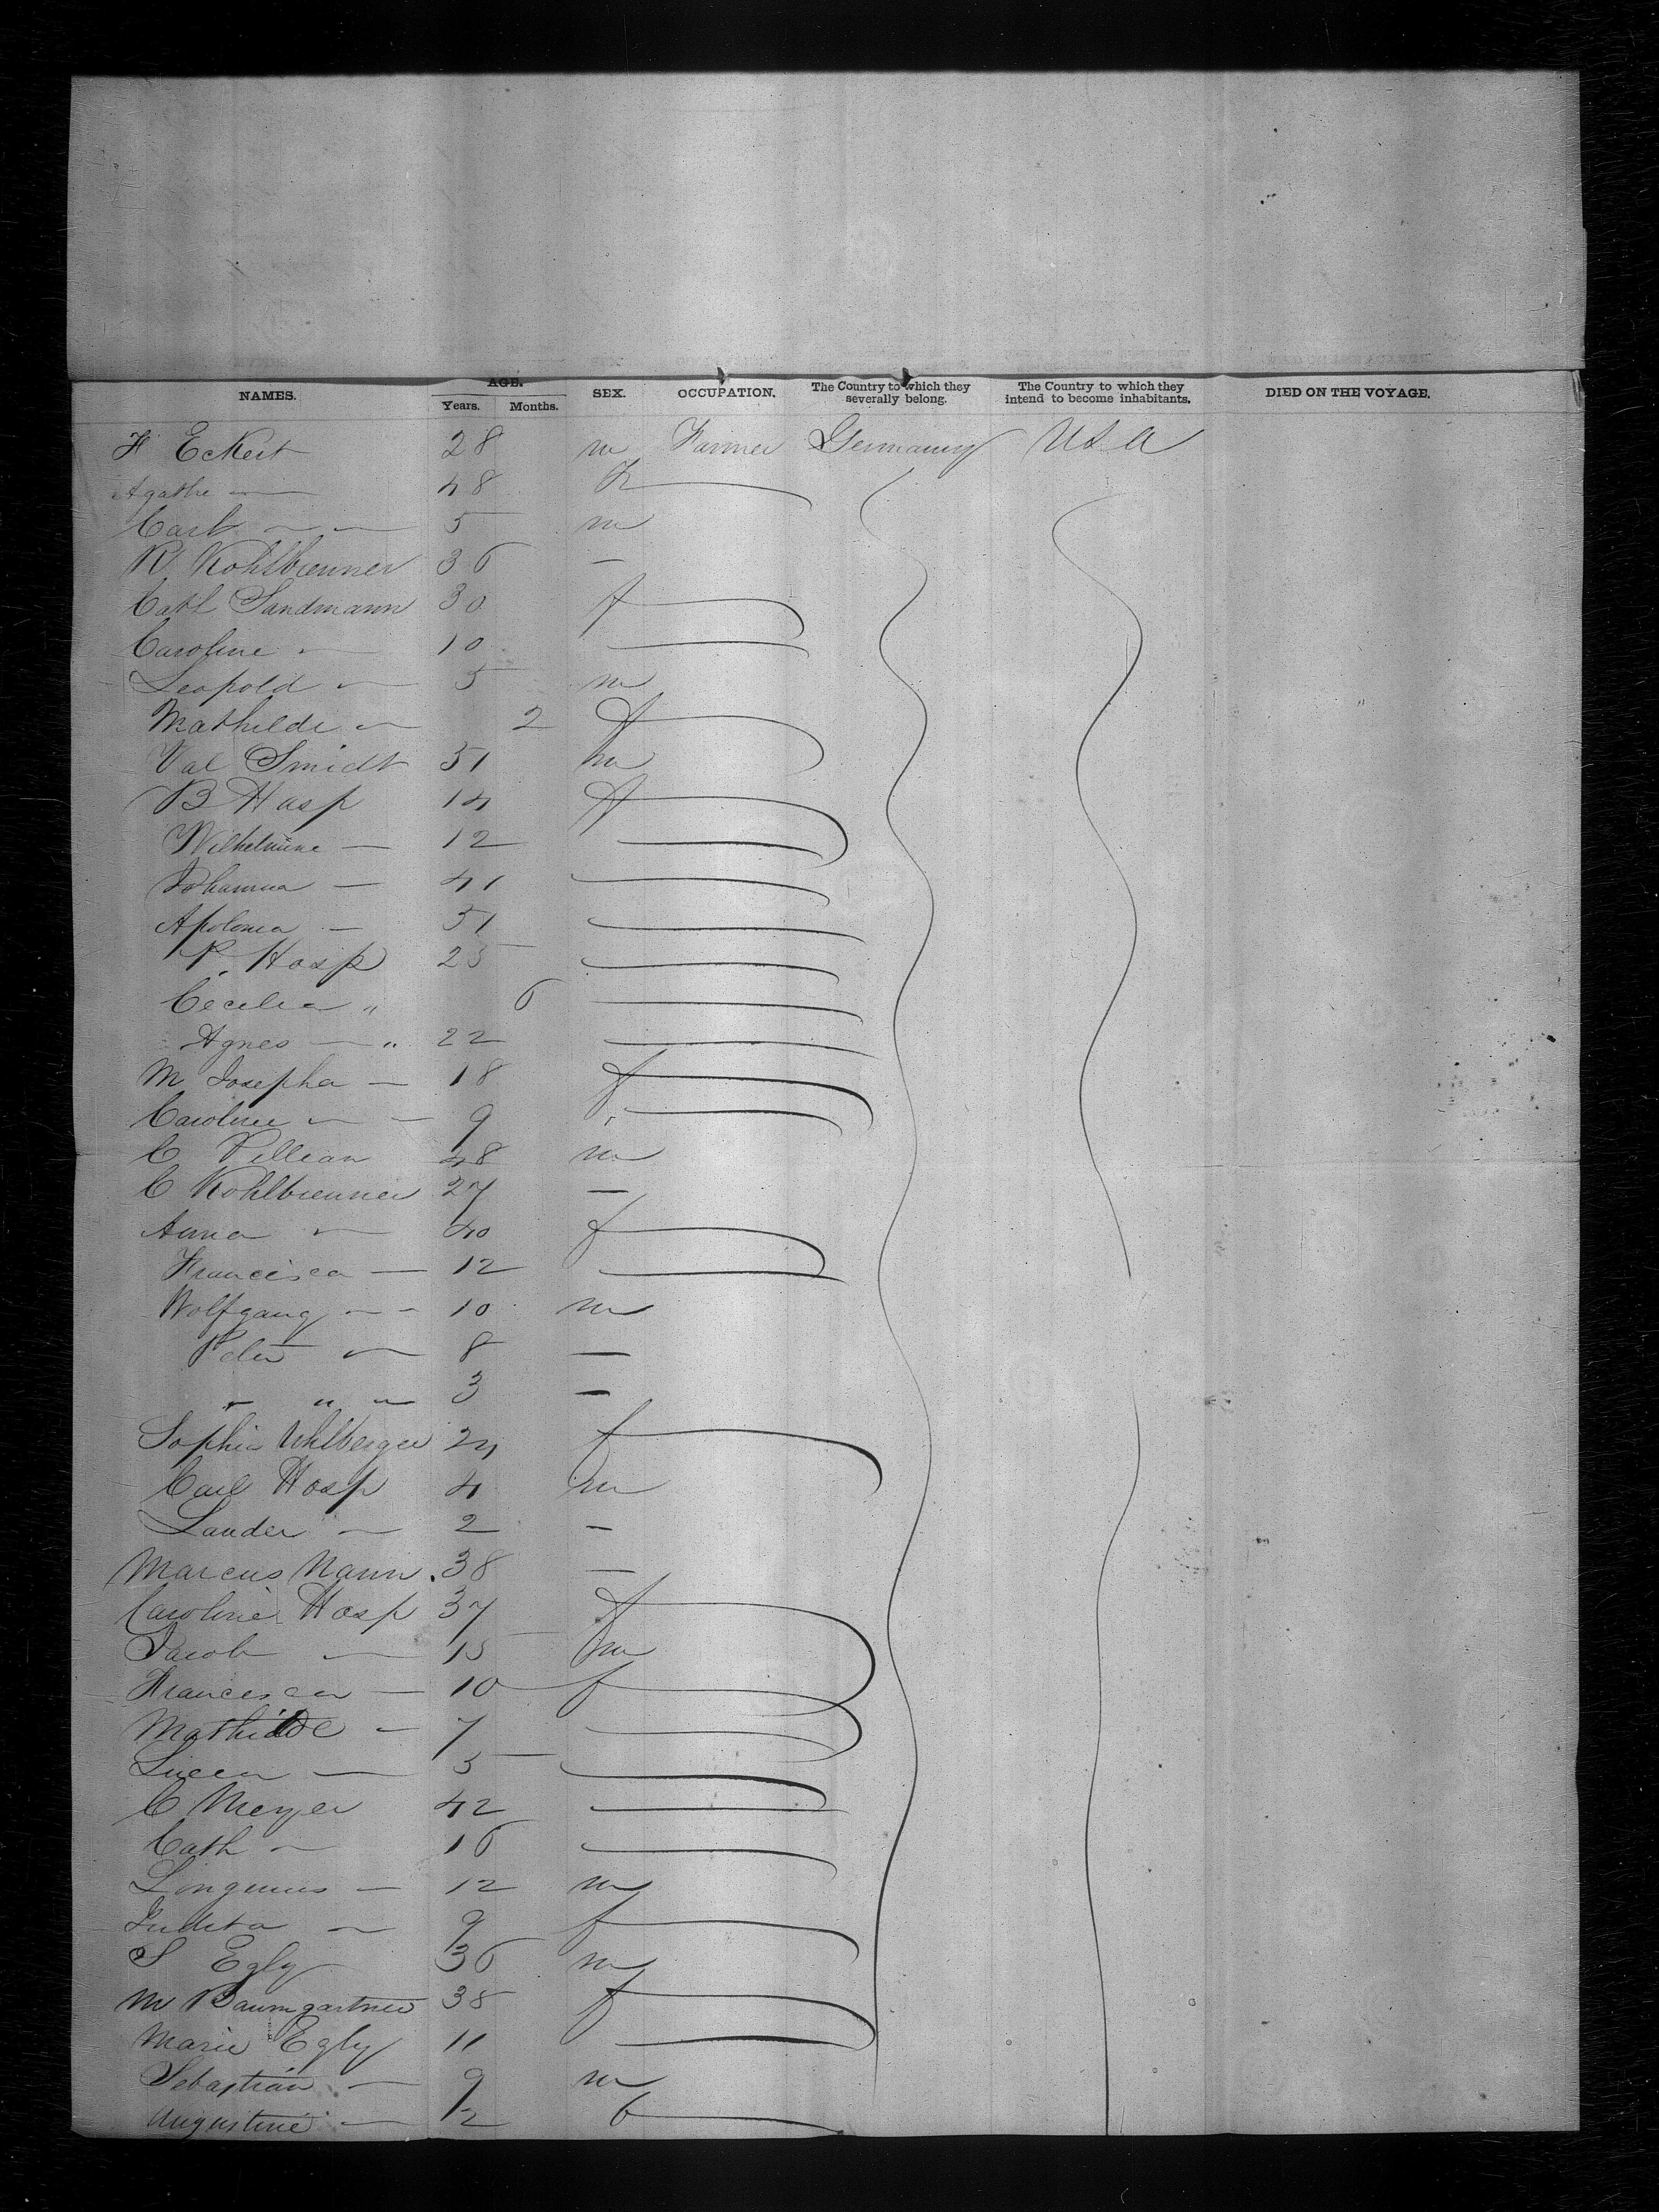 NAMES. AGE. SEX. OCCUPATION. The Country to which they severally belong. The Country to which they intend to become inhabitants. DIED ON THE VOYAGE.
Years. Months.
F Eckert 28 m Farmer Germany USA
Agathe — 48 F
Carl — — 5 m
R Kohlbrenner 36 —
Cath Sandmann 30 f
Caroline — 10
Leopold — 5 m
Mathilde — 2 f
Val Smidt 51 m
B Hasp 14 f
Wilhelmine — 12
Johanna — 41
Apolonia — 51
P. Hosp 25
Cecilia " 6
Agnes — " 22
M Josepha — 18 f
Caroline — — 9
C 48 m
C Kohlbrenner 27 —
Anna — 40 f
Francisca — 12
Wolfgang — — 10 m
Peter — 8 —
" " — 3 —
Sophia Uhlberger 24 f
Carl Hosp 4 m
Lander — 2 —
Marcus Nann. 38 —
Caroline Hosp 37 f
Jacob — 15 m
Francisca — 10 f
Mathilde — 7
— 5
C Meyer 42
Cath — 16
Longinus — 12 m
Judita — 9 f
S Egly 36 m
M Baumgartner 38 f
Marie Egly 11
Sebastian — 9 m
Augustine — 1/2 f